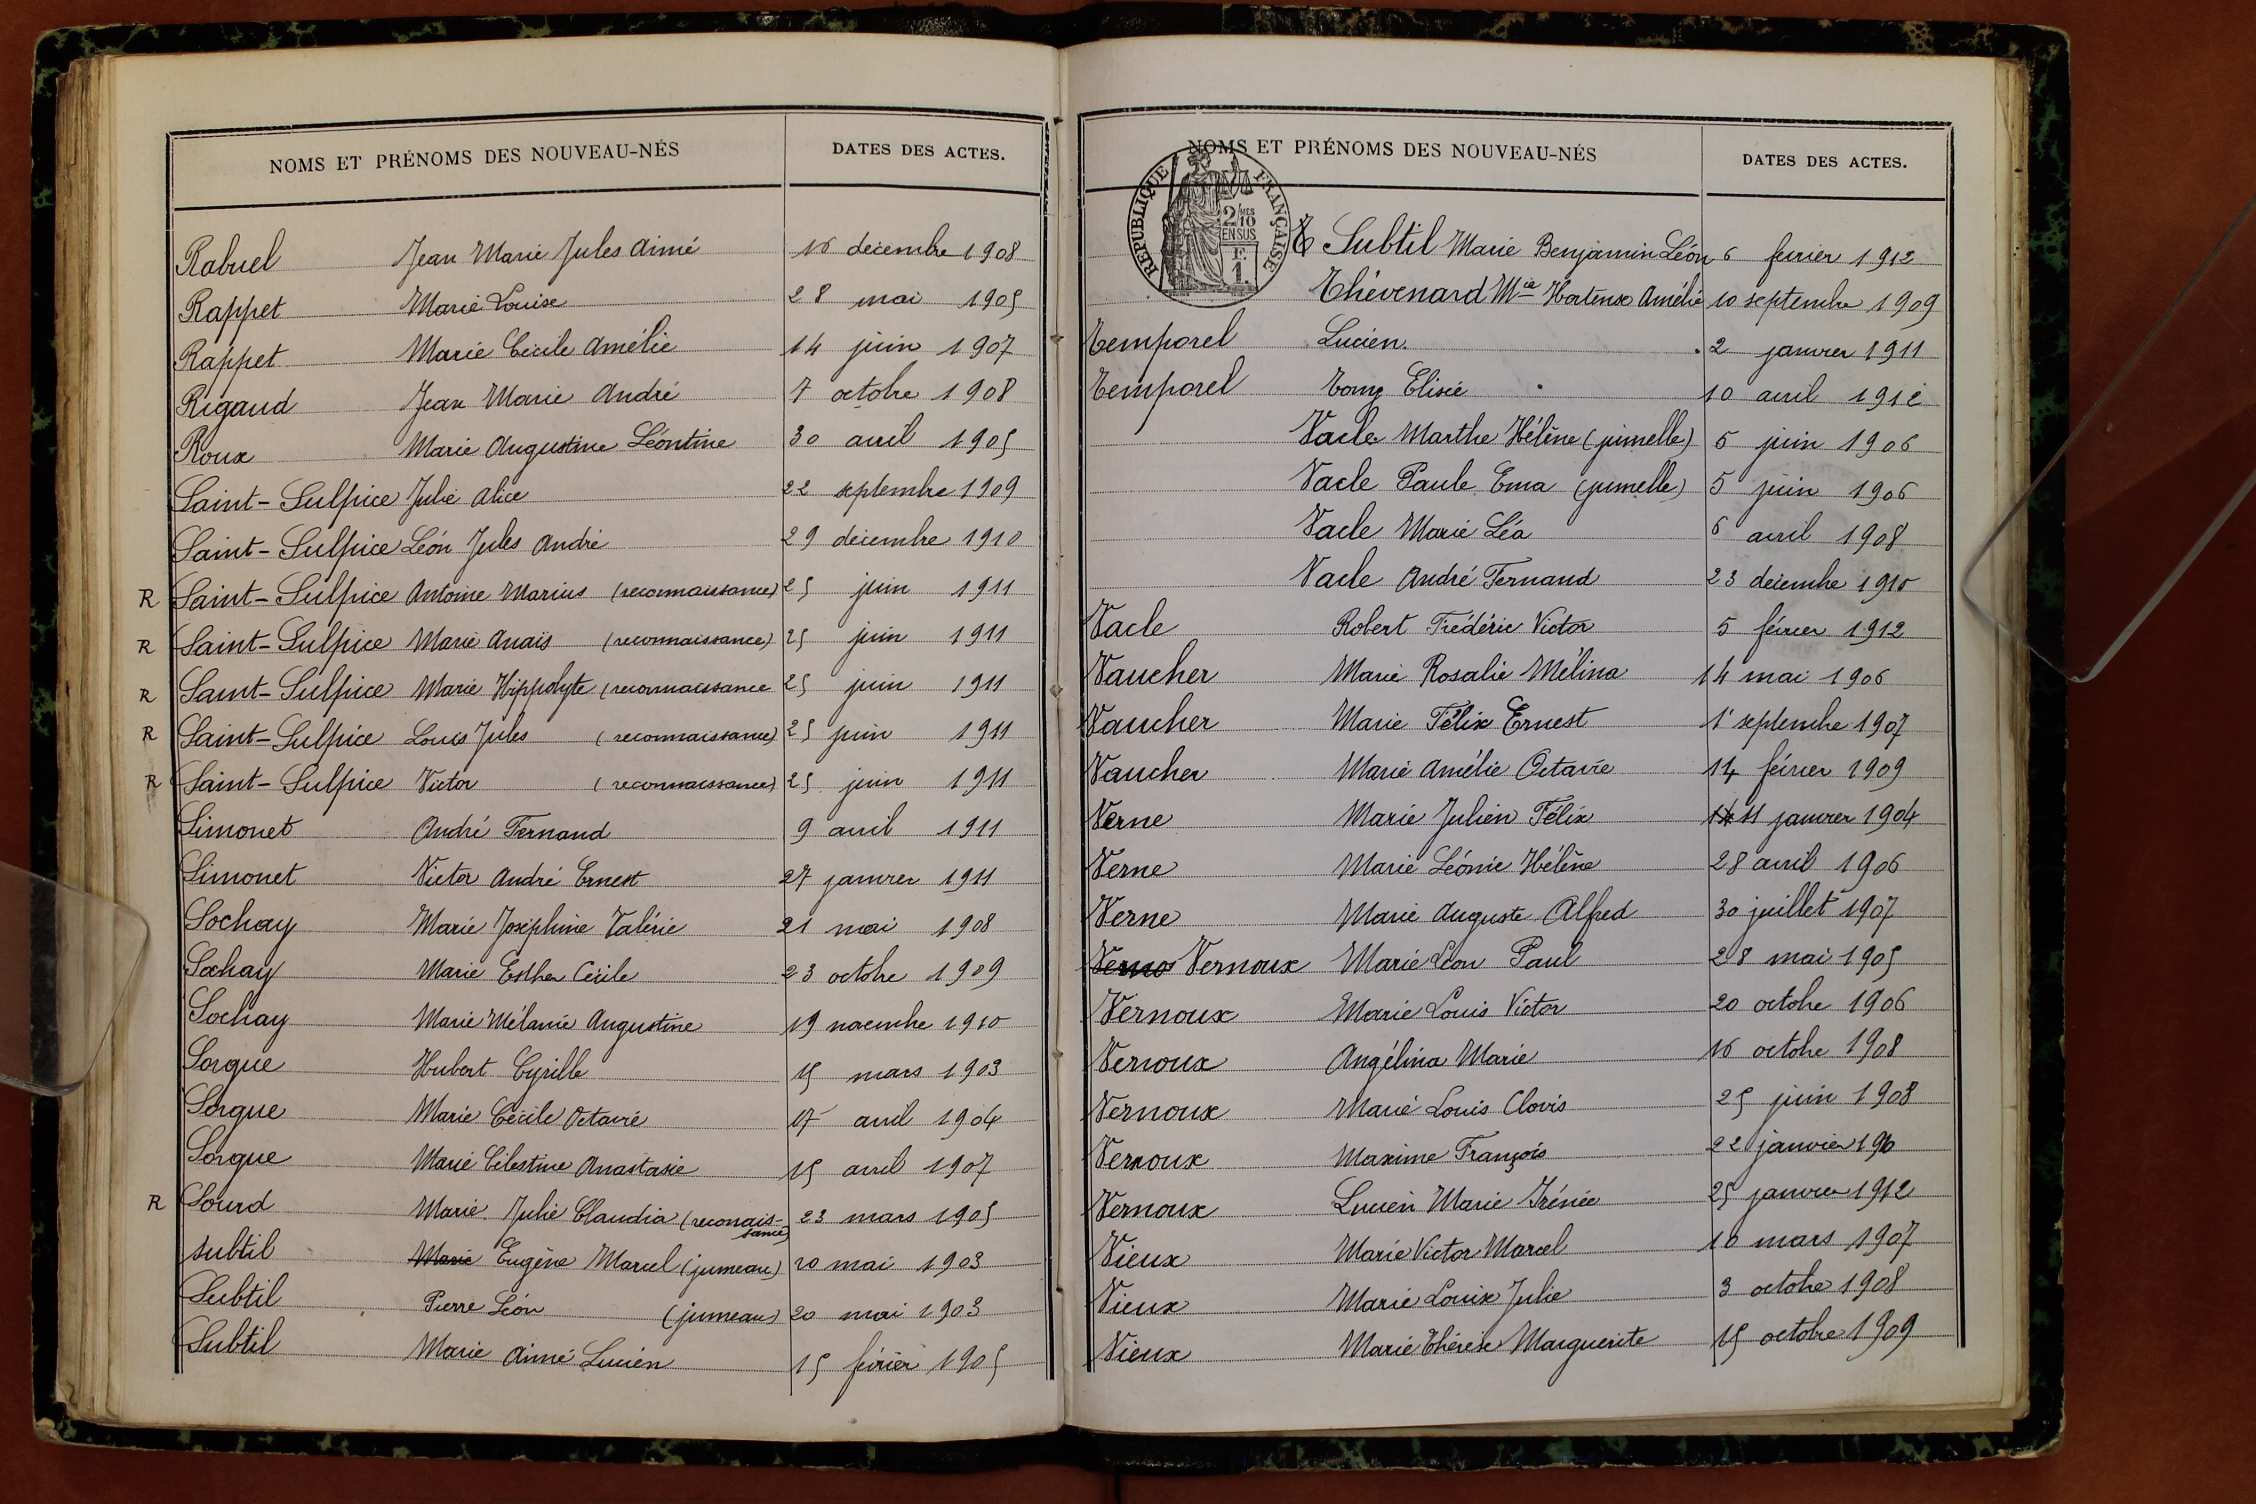 NOMS ET PRÉNOMS DES NOUVEAU-NÉS DATES DES ACTES.
Rabuel Jean Marie Jules Aimé 16 décembre 1908
Rappet Marie Louise 28 mai 1905
Rappet Marie Cécile Amélie 14 juin 1907
Rigaud Jean Marie André 7 octobre 1908
Roux Marie Augustine Léontine 30 avril 1905
Saint-Sulpice Julie Alice 22 septembre 1909
Saint-Sulpice Léon Jules André 29 décembre 1910
R Saint-Sulpice Antoine Marius (reconnaissance) 25 juin 1911
R Saint-Sulpice Marie Anaïs (reconnaissance) 25 juin 1911
R Saint-Sulpice Marie Hippolyte (reconnaissance 25 juin 1911
R Saint-Sulpice Louis Jules (reconnaissance) 25 juin 1911
R Saint-Sulpice Victor (reconnaissance) 25 juin 1911
Simonet André Fernand 9 avril 1911
Simonet Victor André Ernest 27 janvier 1911
Sochay Marie Joséphine Valérie 21 mai 1908
Sochay Marie Esther Cécile 23 octobre 1909
Sochay Marie Mélanie Augustine 19 novembre 1910
Sorgue Hubert Cyrille 15 mars 1903
Sorgue Marie Cécile Octavie 17 avril 1904
Sorgue Marie Célestine Anastasie 15 avril 1907
R Sourd Marie Julie Claudia (reconais- 23 mars 1905
sance)
Subtil Marie Eugène Marcel (jumeau) 20 mai 1903
Subtil Pierre Léon (jumeau) 20 mai 1903
Subtil Marie Aimé Lucien 15 février 1905
NOMS ET PRÉNOMS DES NOUVEAU-NÉS DATES DES ACTES.
RÉPUBLIQUE FRANÇAISE
2/10 MES
EN SUS
F.
1.
Subtil Marie Benjamin Léon 6 février 1912
Thévenard Mie Hortense Amélie 10 septembre 1909
Temporel Lucien. 2 janvier 1911
Temporel Tony Elisée 10 avril 1912
Vacle Marthe Hélène (jumelle) 5 juin 1906
Vacle Paule Ema (jumelle) 5 juin 1906
Vacle Marie Léa 6 avril 1908
Vacle André Fernand 23 décembre 1910
Vacle Robert Frédéric Victor 5 février 1912
Vaucher Marie Rosalie Mélina 14 mai 1906
Vaucher Marie Félix Ernest 1er septembre 1907
Vaucher Marie Amélie Octavie 14 février 1909
Verne Marie Julien Félix 11 janvier 1904
Verne Marie Léonie Hélène 28 avril 1906
Verne Marie Auguste Alfred 30 juillet 1907
Verno Vernoux Marie Léon Paul 28 mai 1905
Vernoux Marie Louis Victor 20 octobre 1906
Vernoux Angélina Marie 16 octobre 1908
Vernoux Marie Louis Clovis 25 juin 1908
Vernoux Maxime François 22 janvier
Vernoux Lucien Marie Irénée 25 janvier 1912
Vieux Marie Victor Marcel 10 mars 1907
Vieux Marie Louise Julie 3 octobre 1908
Vieux Marie Thérèse Marguerite 15 octobre 1909